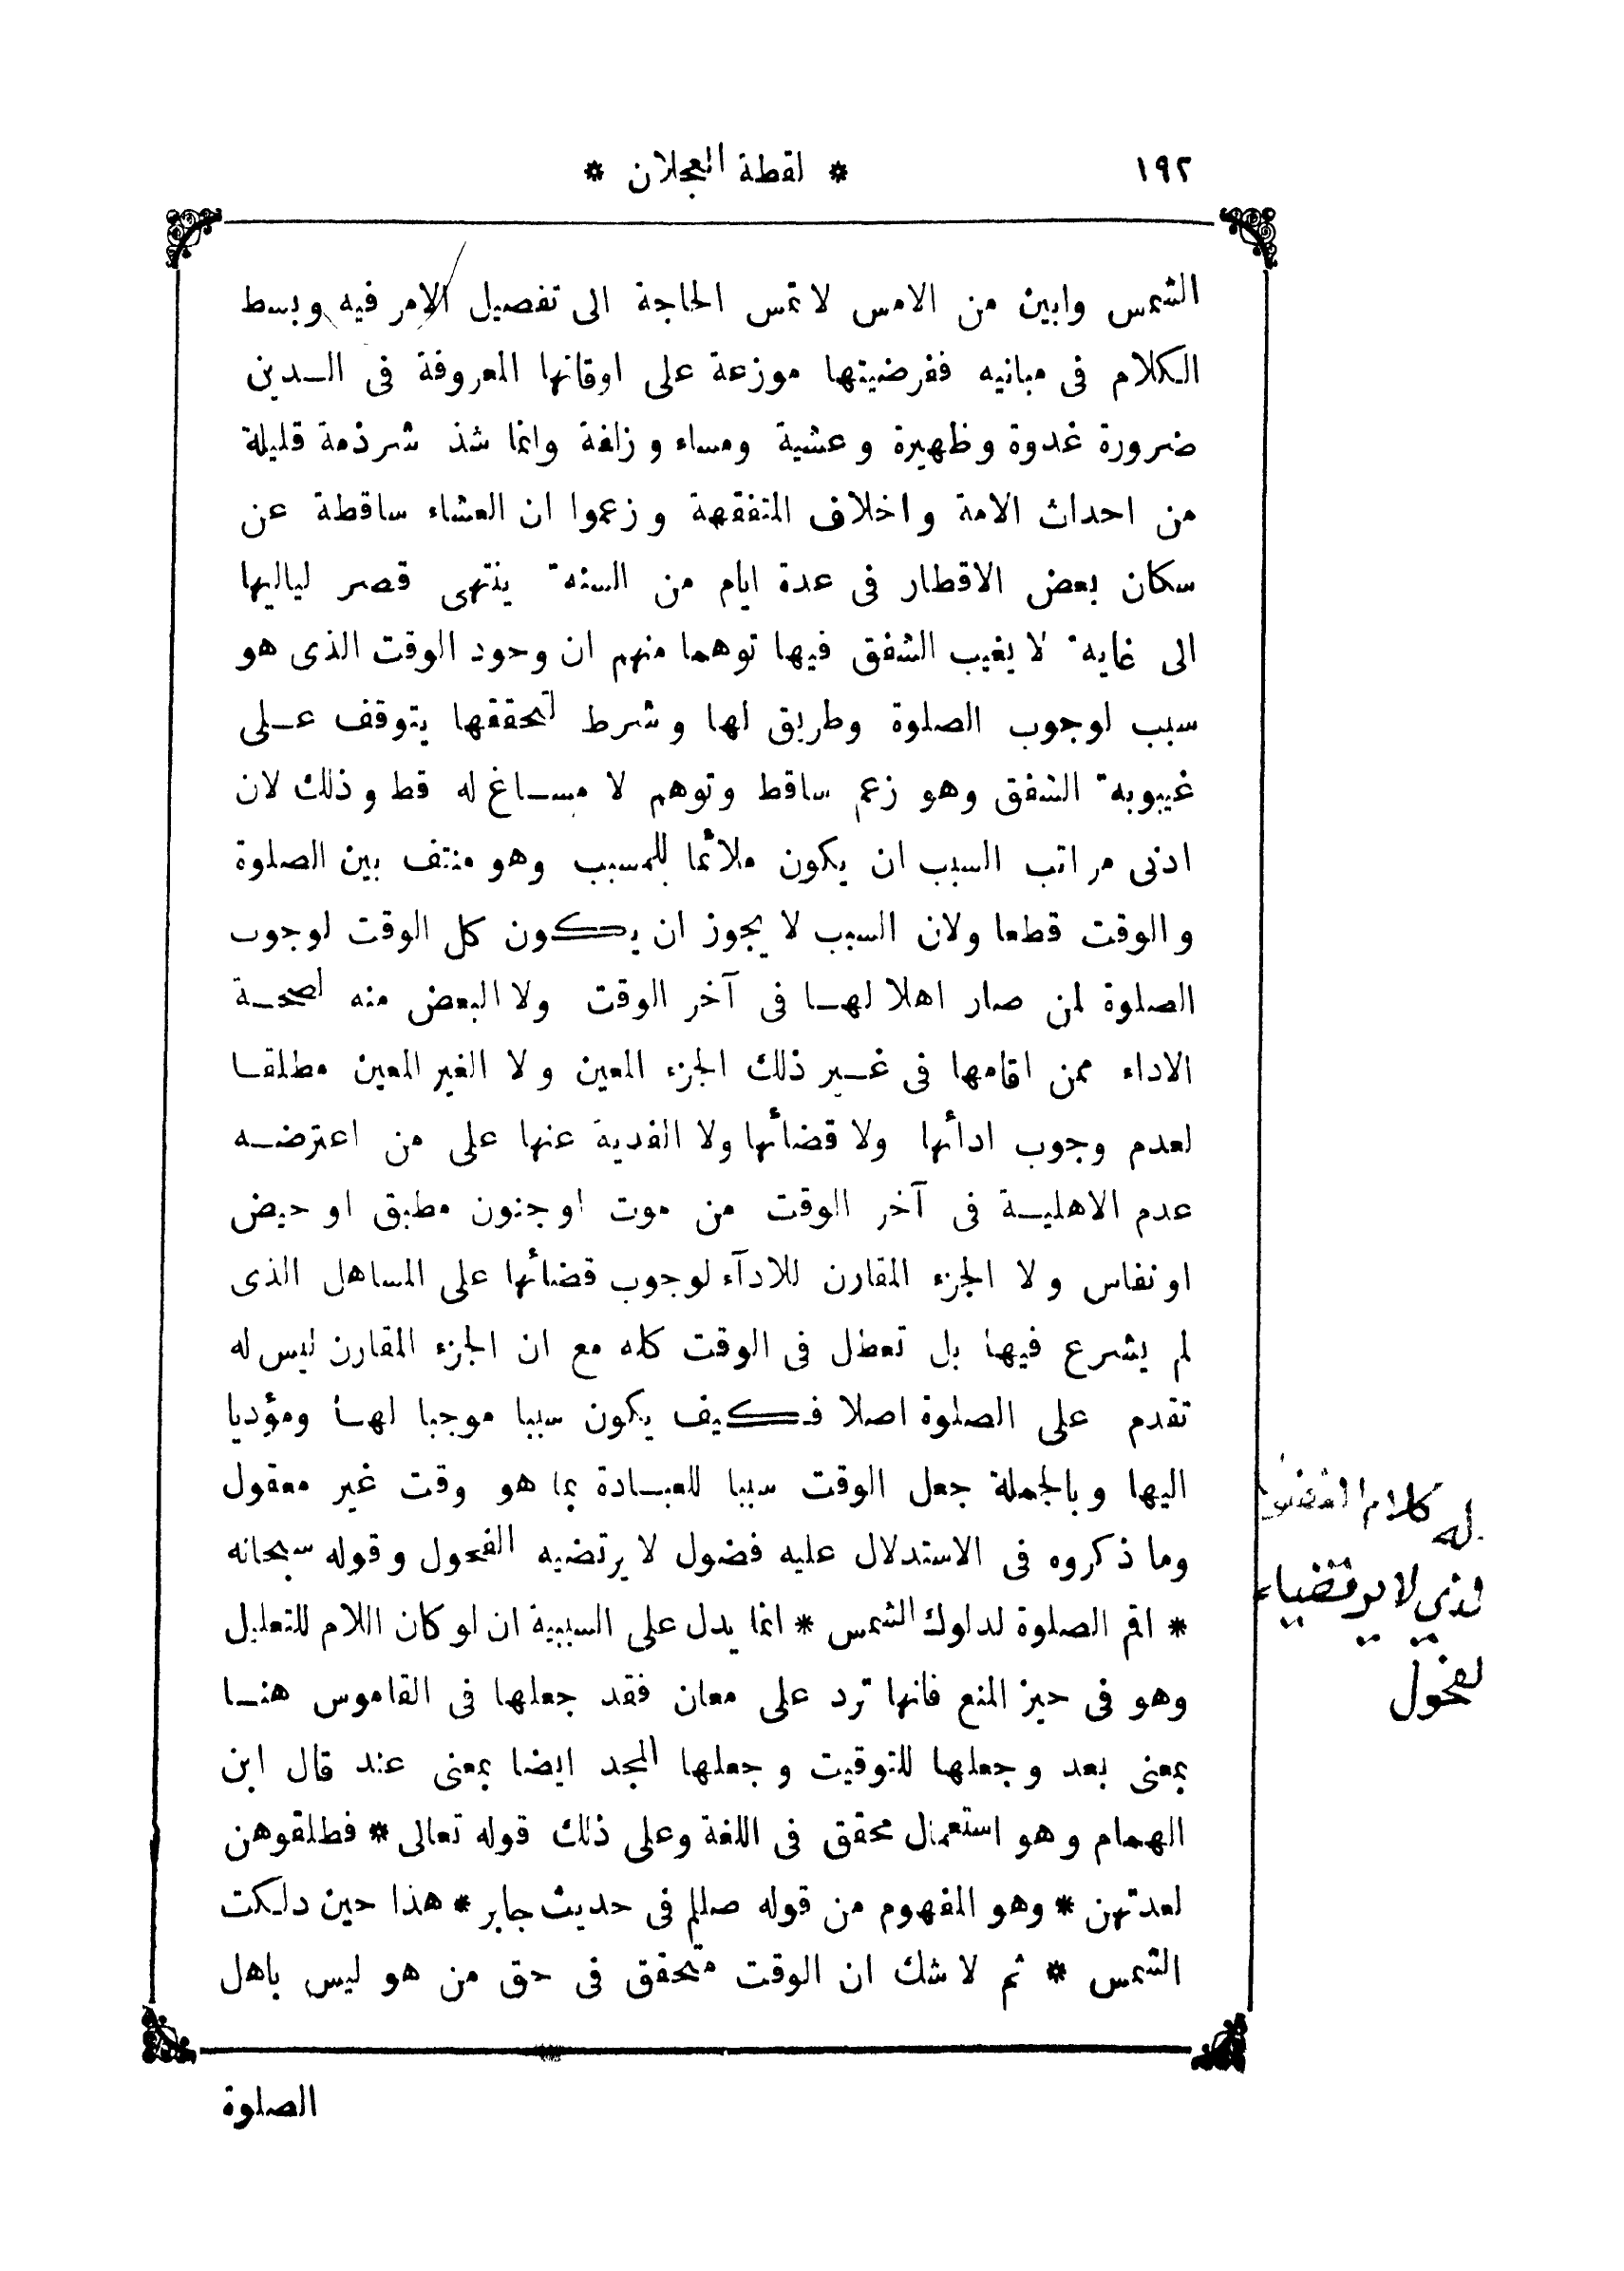 ١٩٢
* لقطة العجلان *
الشمس وابين من الامس لا تمس الحاجة الى تفصيل الامر فيه وبسط
الكلام فى مبانيه ففرضيتها موزعة على اوقاتها المعروفة فى الـدين
ضرورة غدوة وظهيرة وعشية ومساء وزلفة وانما شذ شرذمة قليلة
من احداث الامة واخلاف المتفقهة وزعموا ان العشاء ساقطة عن
سكان بعض الاقطار فى عدة ايام من السنة ينتهى قصر لياليها
الى غاية لا يغيب الشفق فيها توهما منهم ان وجود الوقت الذى هو
سبب لوجوب الصلوة وطريق لها وشرط لتحققها يتوقف عـلى
غيبوبة الشفق وهو زعم ساقط وتوهم لا مسـاغ له قط وذلك لان
ادنى مراتب السبب ان يكون ملائما للمسبب وهو منتف بين الصلوة
والوقت قطعا ولان السبب لا يجوز ان يكون كل الوقت لوجوب
الصلوة لمن صار اهلا لهـا فى آخر الوقت ولا البعض منه لصحـة
الاداء ممن اقامها فى غـير ذلك الجزء المعين ولا الغير المعين مطلقـا
لعدم وجوب ادأئها ولا قضائها ولا الفدية عنها على من اعترضـه
عدم الاهليـة فى آخر الوقت من موت او جنون مطبق او حيض
او نفاس ولا الجزء المقارن للادآء لوجوب قضائها على المساهل الذى
لم يشرع فيها بل تعطل فى الوقت كله مع ان الجزء المقارن ليس له
تقدم على الصلوة اصلا فـكيف يكون سببا موجبا لهـا ومؤديا
اليها وبالجملة جعل الوقت سببا للعبـادة بما هو وقت غير معقول
وما ذكروه فى الاستدلال عليه فضول لا يرتضيه الفحول وقوله سبحانه
* اقم الصلوة لدلوك الشمس * انما يدل على السببية ان لو كان اللام للتعليل
وهو فى حيز المنع فانها ترد على معان فقد جعلها فى القاموس هنـا
بمعنى بعد وجعلها للتوقيت وجعلها المجد ايضا بمعنى عند قال ابن
الهمام وهو استعمال محقق فى اللغة وعلى ذلك قوله تعالى * فطلقوهن
لعدتهن * وهو المفهوم من قوله صللم فى حديث جابر * هذا حين دلكت
الشمس * ثم لا شك ان الوقت متحقق فى حق من هو ليس باهل
الصلوة
له كلام
لا يرتضيها
لفحول